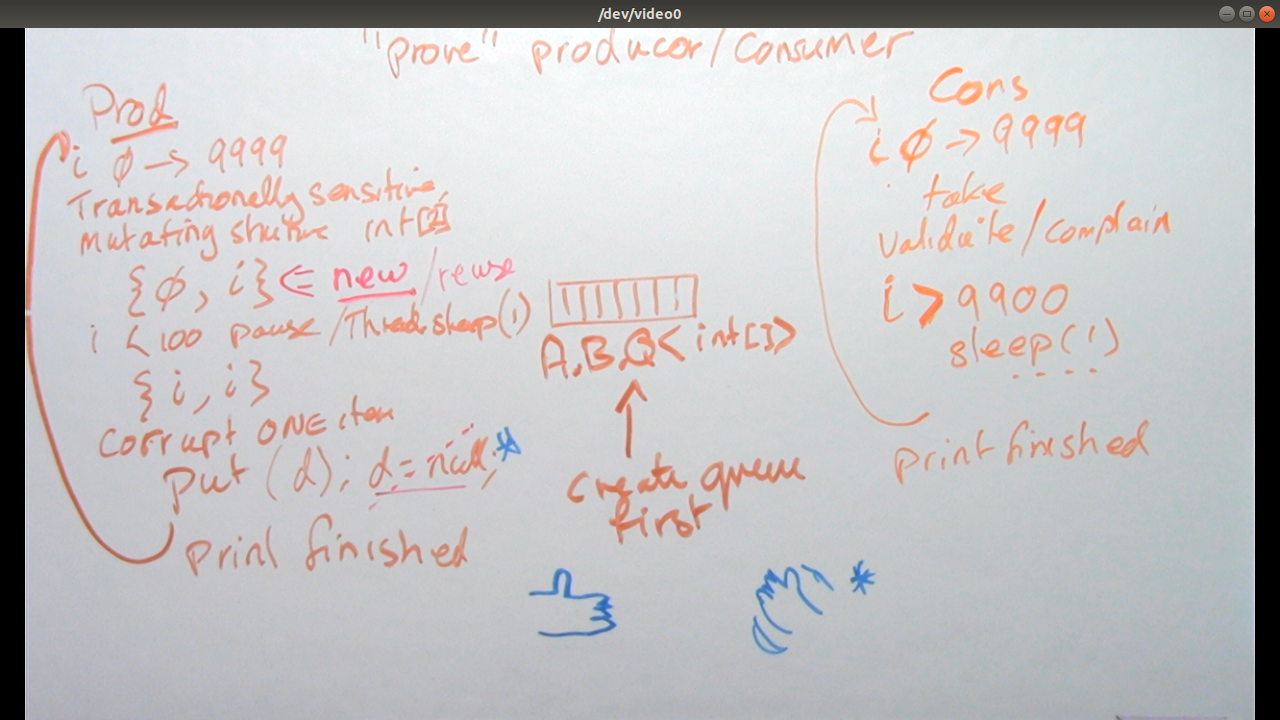 /dev/video0
"prove" producer/consumer
Prod
i 0 -> 9999
Transactionally sensitive,
Mutating structure int[2]
{0, i} <= new/reuse
i < 100 pause/Thread.sleep(1)
{i, i}
Corrupt ONE item
put (d); d = null; *
print finished
A.B.Q< int[]>
create queue
first
Cons
i 0 -> 9999
take
validate/complain
i > 9900
sleep(1)
print finished
*